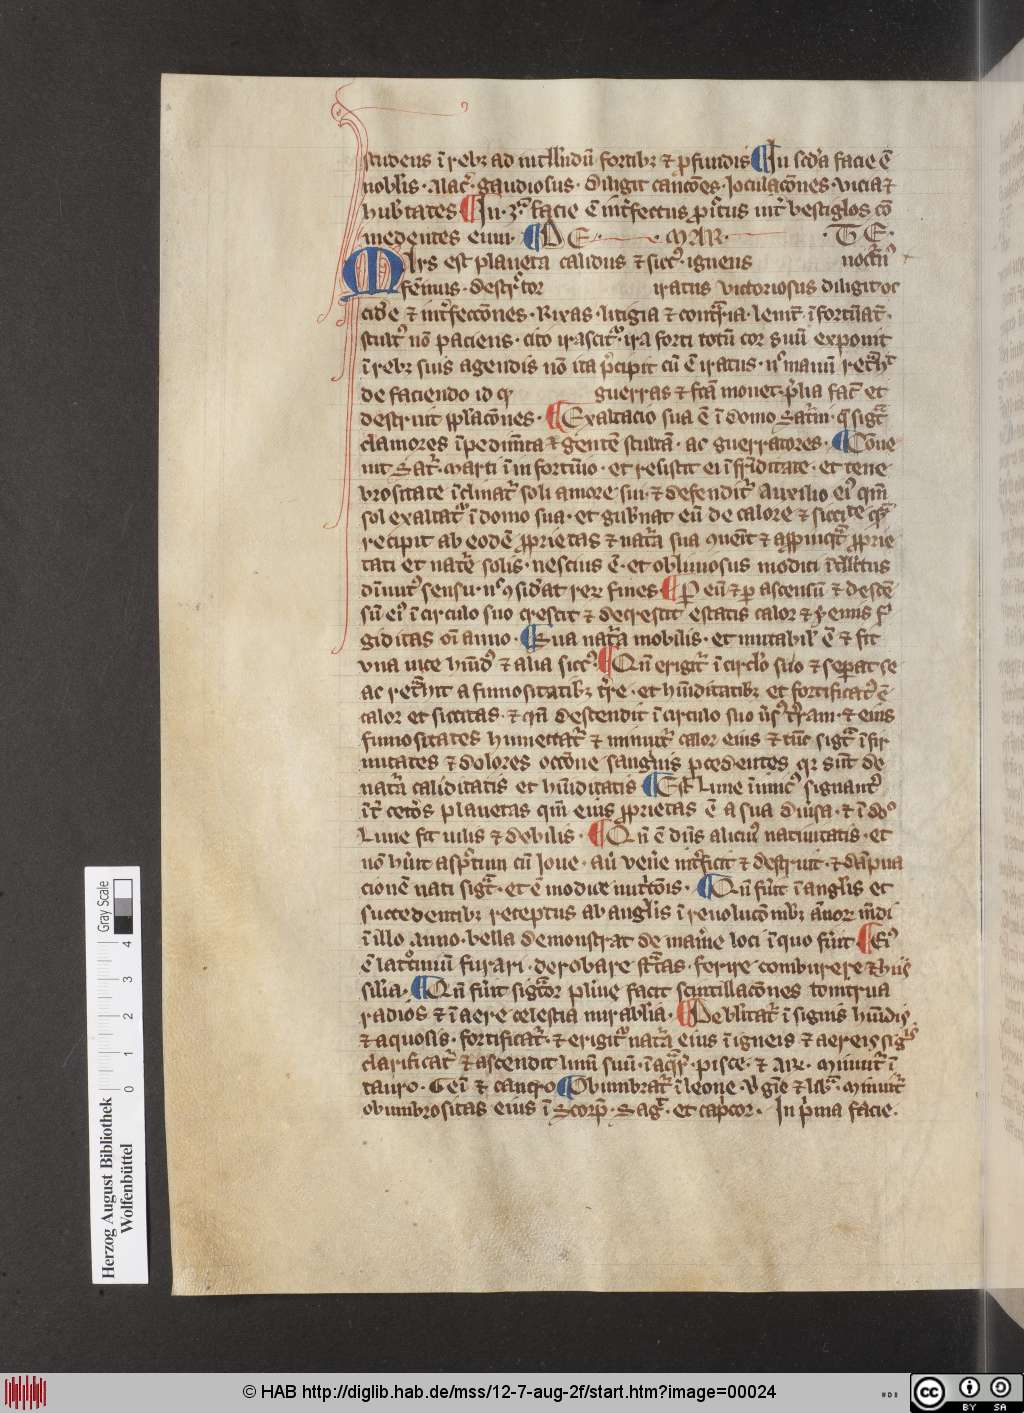 studens ī rebꝫ ad intll'īdū fortibꝫ ⁊ ꝓfundis In scd'a facie ē
nobl'is · alac̄ · gaudiosus · diligit cancōes · Joculacōes · vicia ⁊
In · 3ª · facie ē int̄fectus bestiolos cō
medentes eum · DE MAR TE ·
Mars est planeta calidus ⁊ sicc⁹ · igneus noct'n⁹
fēinus · destr̄tor iratus victoriosus diligit oc
cid'e ⁊ int̄feccōnes · Rixas · litigia ⁊ cont̄ria · leuit̄ ī fortūat̄ ·
stult⁹ nō paciens · cito irascit̄ · ira forti totū cor suū exponit
ī rebꝫ suis agendis nō ita p̄cipit cū ē iratus · n¹ manū ret̄h't
de faciendo id q guerras ⁊ monet · p̄lia fac̄ et
destruit Exaltacio sua ē ī domo Sat̄ni · q̄ sigt̄
clamores īpedim̄ta ⁊ gentē stultā · ac guerratores · Cōue
nit Sat̄ · Marti ī infortūio · et resistit ei ī fr̄iditate · et tene
brositate īclinat̄ soli amore sui · ⁊ defendit̄ auxilio ei⁹ qm̄
sol exaltat̄ ī domo sua · et gub'nat eū de calore ⁊ siccite
recipit ab eodē ꝓprietas ⁊ nat̄a sua ꝯuēit ⁊ apꝓpinqt̄ ꝓprie
tati et nat̄e solis · nescius ē · et obliuiosus modici ītell'tus
dīnuit sensu · n¹ ꝯsid'at reꝝ fines P eū ⁊ ꝑ ascensū ⁊ descē
sū ei⁹ ī circulo suo crescit ⁊ decrescit estatis calor ⁊ yemis fⁱ
giditas oī anno · Sua nat̄a mobilis · et mutabil' ē ⁊ fit
vna vice hūid⁹ ⁊ alia sicc⁹ · Qn̄ erigit̄ ī circl'o suo ⁊ sep̄at se
ac ret̄hit a fumositatibꝫ t̄re · et hūiditatibꝫ et fortificat⁹ ē
calor et siccitas · ⁊ qn̄ descendit ī circulo suo v̄s⁹ t̄ram · ⁊ eius
fumositates humectat̄ ⁊ minuit̄ calor eius ⁊ tūc sigt̄ īfir
mitates ⁊ dolores occōne sanguis p̄cedentes qꝛ sūt de
nat̄a caliditatis et hūiditatis Est Lune īimic⁹ signant⁹
īt̄ cet̄os planetas qm̄ eius ꝓprietas ē a sua diū̄sa · ⁊ ī do⁹
Lune fit vilis ⁊ debilis · Qn̄ ē dn̄s alicui⁹ natiuitatis · et
nō hūit asp̄tum cū Joue · aū vene int̄ficit ⁊ destruit · ⁊ dāpna
cionē nati sigt̄ · et ē modice nut̄cōis · Qn̄ fūit ī angl'is et
succedentibꝫ receptus ab angl'is ī reuolucōnibꝫ ānoꝝ mūdi
ī illo anno · bella demonstrat de man'ie loci ī quo fūit Ei⁹
ē latⁱciniū furari · derobare st̄tas · ferire comburere ⁊ hiⁱs
silia · Qn̄ fūit sigt̄or pluuie facit scintillacōes tonitrua
radios ⁊ ī aere celestia mirabl'ia · Deblitat̄ ī signis hūidis
⁊ aquosis · fortificat̄ · ⁊ erigit̄ nat̄a eius ī igneis ⁊ aereis sigⁱs
clarificat̄ ⁊ ascendit lum̄ suū · ī aqr̄ · pisce · ⁊ Ar · Minuit̄ ī
tauro · Gem̄ ⁊ cancro Obumbrat̄ ī leone · v̄gīe ⁊ lib̄ª · Minuit̄
obumbrositas eius ī Scorp̄ · Sag̃ · et cap̄cor · In p̄ma facie ·
Herzog August Bibliothek
Wolfenbüttel
0 1 2 3 4
Gray Scale
© HAB http://diglib.hab.de/mss/12-7-aug-2f/start.htm?image=00024
cc BY SA